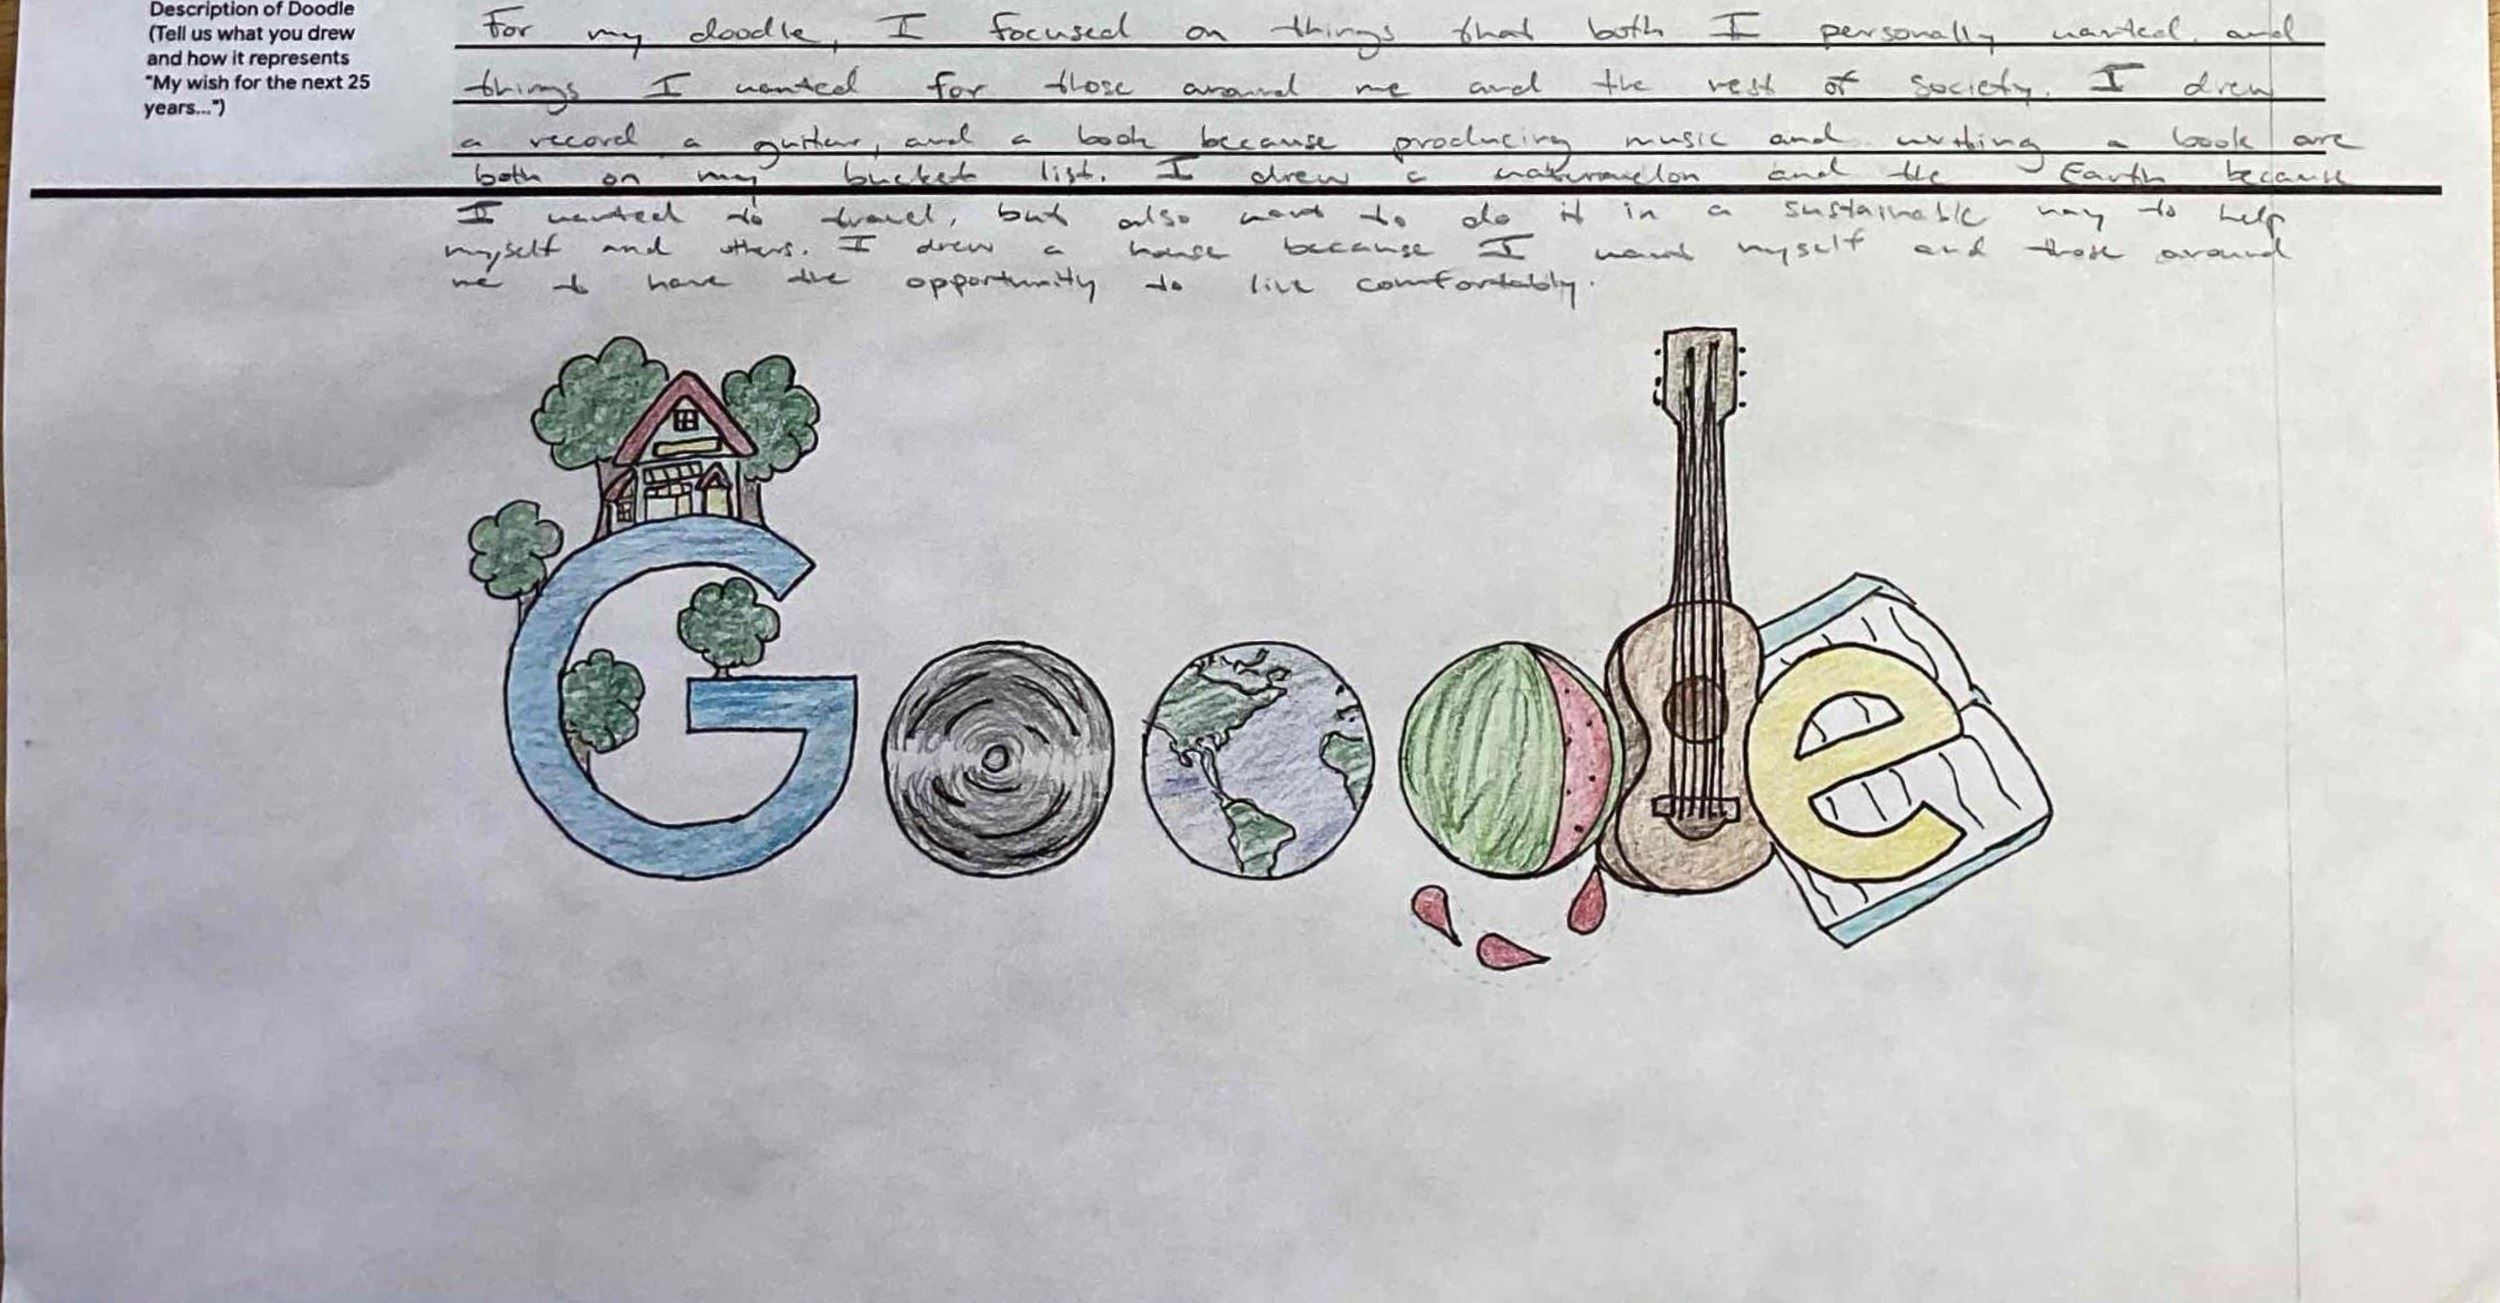 Description of Doodle
(Tell us what you drew
and how it represents
"My wish for the next 25
years...")
For my doodle, I focused on things that both I personally wanted and
things I wanted for those around me and the rest of society. I drew
a record a guitar, and a book because producing music and writing a book are
both on my bucket list. I drew a watermelon and the Earth because
I wanted to travel, but also want to do it in a sustainable way to help
myself and others. I drew a house because I want myself and those around
me to have the opportunity to live comfortably.
Google